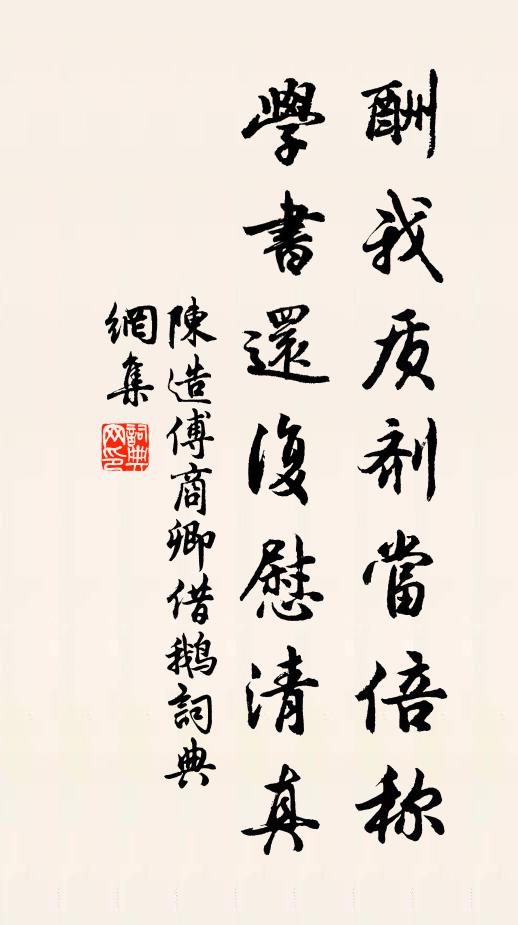 酬我质剂當倍称
學書還復慰清真
陳造傅商卿借鵝詞典
網集
詞典
网印